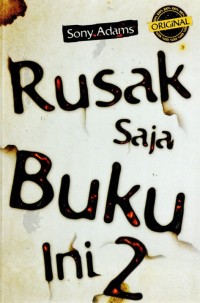 Sony Adams
ORIGINAL
Rusak
Saja
Buku
Ini 2